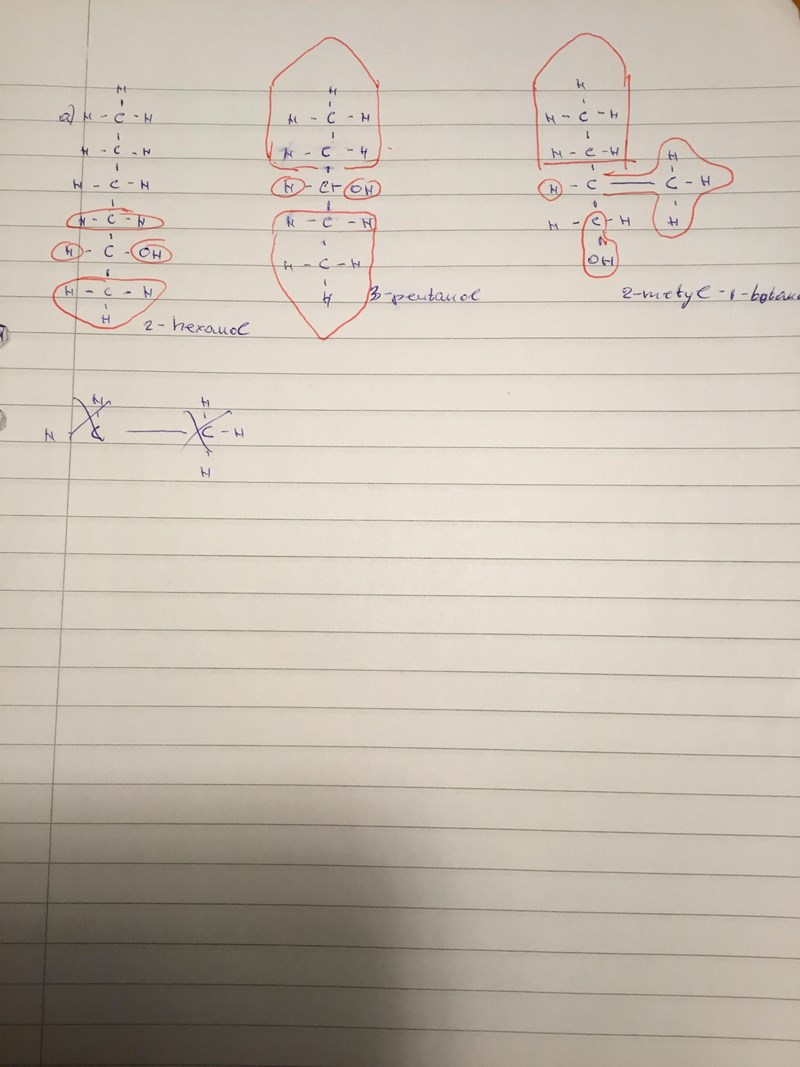 a) H
H - C - H
H - C - H
H - C - H
H - C - H
H - C - OH
H - C - H
H
2-hexanol
H
H - C - H
H - C - H
H - C - OH
H - C - H
H - C - H
H
3-pentanol
H
H - C - H
H - C - H
H
H - C — C - H
H - C - H
H
OH
2-metyl-1-
H
H C — C - H
H
H